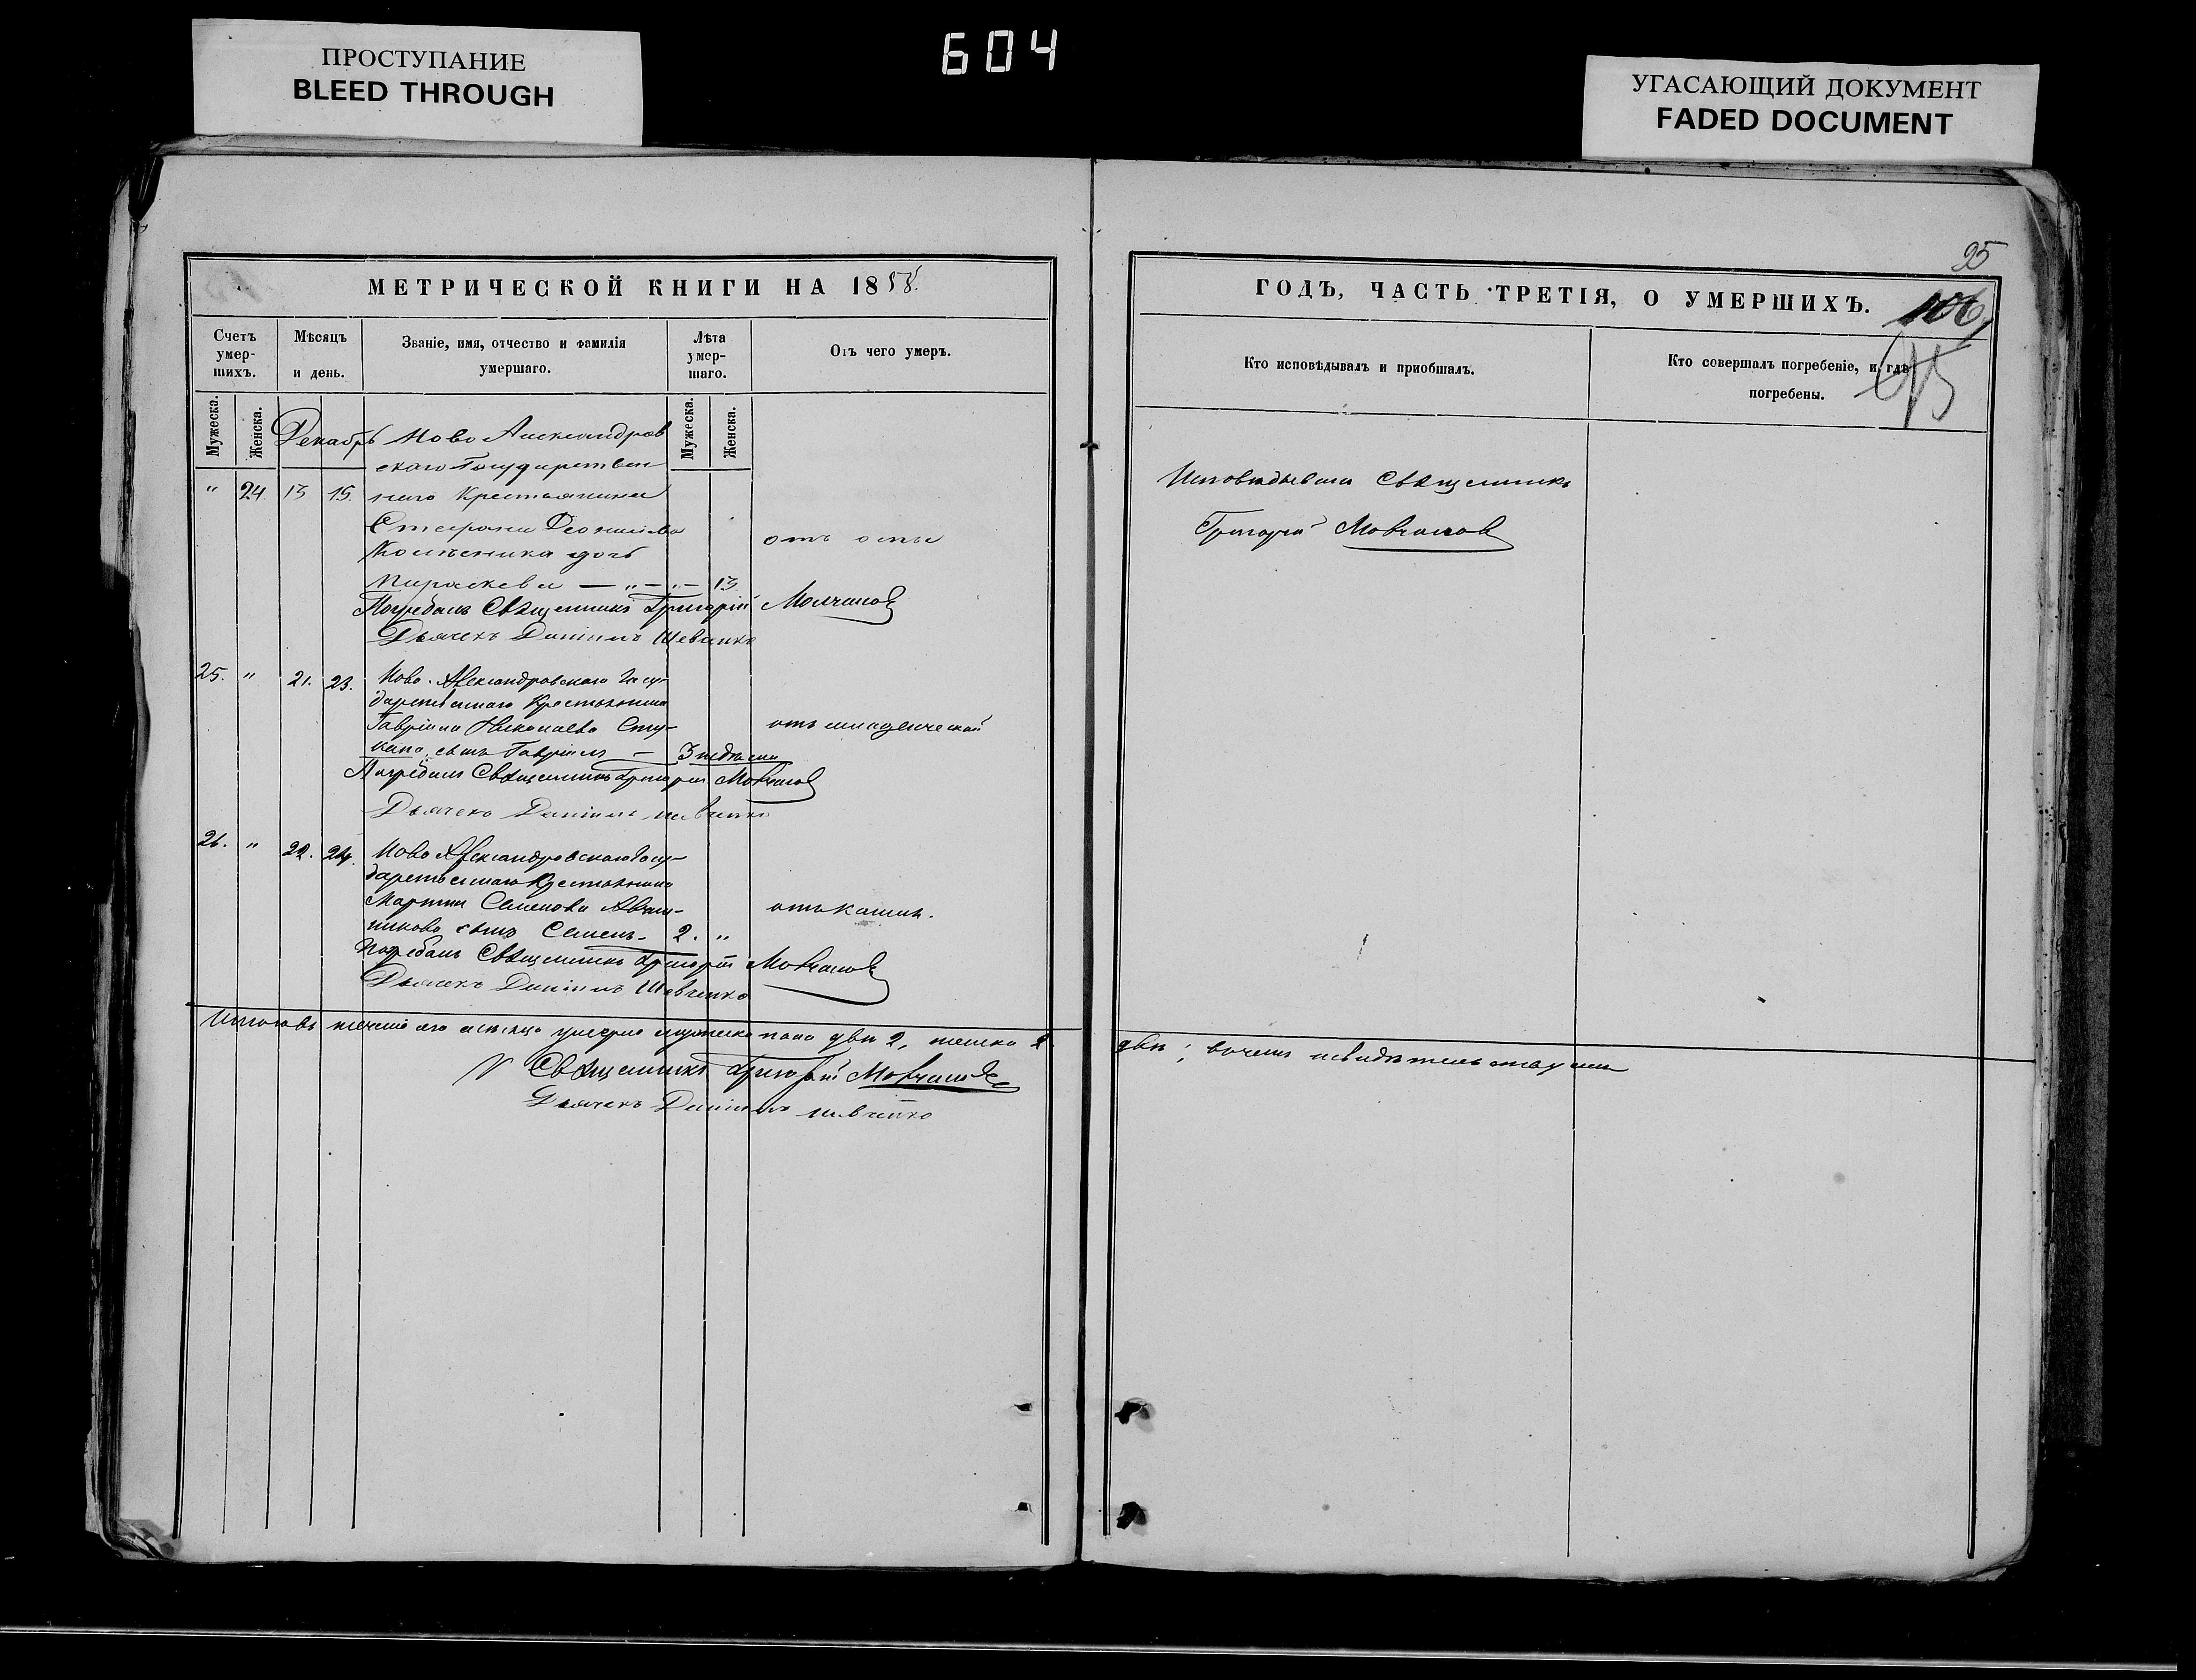 ПРОСТУПАНИЕ
BLEED THROUGH
604
УГАСАЮЩИЙ ДОКУМЕНТ
FADED DOCUMENT
МЕТРИЧЕСКОЙ КНИГИ НА 1858.
Счетъ умер-шихъ.
Мѣсяцъ и день.
Званіе, имя, отчество и фамилія умершаго.
Лѣта умер-шаго.
Отъ чего умеръ.
Мужеска.
Женска.
Мужеска.
Женска.
Декабрь Ново Александров
скаго Государствен
" 24. 13 15. наго Крестьянина
Стефана
дочь
отъ оспы
Параскева — " — " — 13
Погребалъ Священникъ Григорій Молчанов
Дьячекъ Даніилъ Шевченко
25. " 21. 23. Ново-Александровскаго Госу-
дарственнаго Крестьянина
Гавріила Николаева Сту-
отъ младенческой
сынъ Гавріилъ — 3 недели
Погребалъ Священникъ Григорій Мовчанов
Дьячекъ Даніилъ Шевченко
26. " 22. 24. Ново Александровскаго Госу-
дарственнаго Крестьянина
Мартина Семенова
отъ кашля.
сынъ Семенъ — 2. "
Погребалъ Священникъ Григорій Мовчанов
Дьячекъ Даніилъ Шевченко
умерло мужеска пола два 2, женска 2
Священникъ Григорій Мовчанов
Дьячекъ Даніилъ Шевченко
95
ГОДЪ, ЧАСТЬ ТРЕТІЯ, О УМЕРШИХЪ.
106
95
Кто исповѣдывалъ и пріобщалъ.
Кто совершалъ погребеніе, и гдѣ погребены.
Исповѣдывалъ Священникъ
Григорій Мовчанов
двѣ; вочемъ и свидѣтельствуемъ